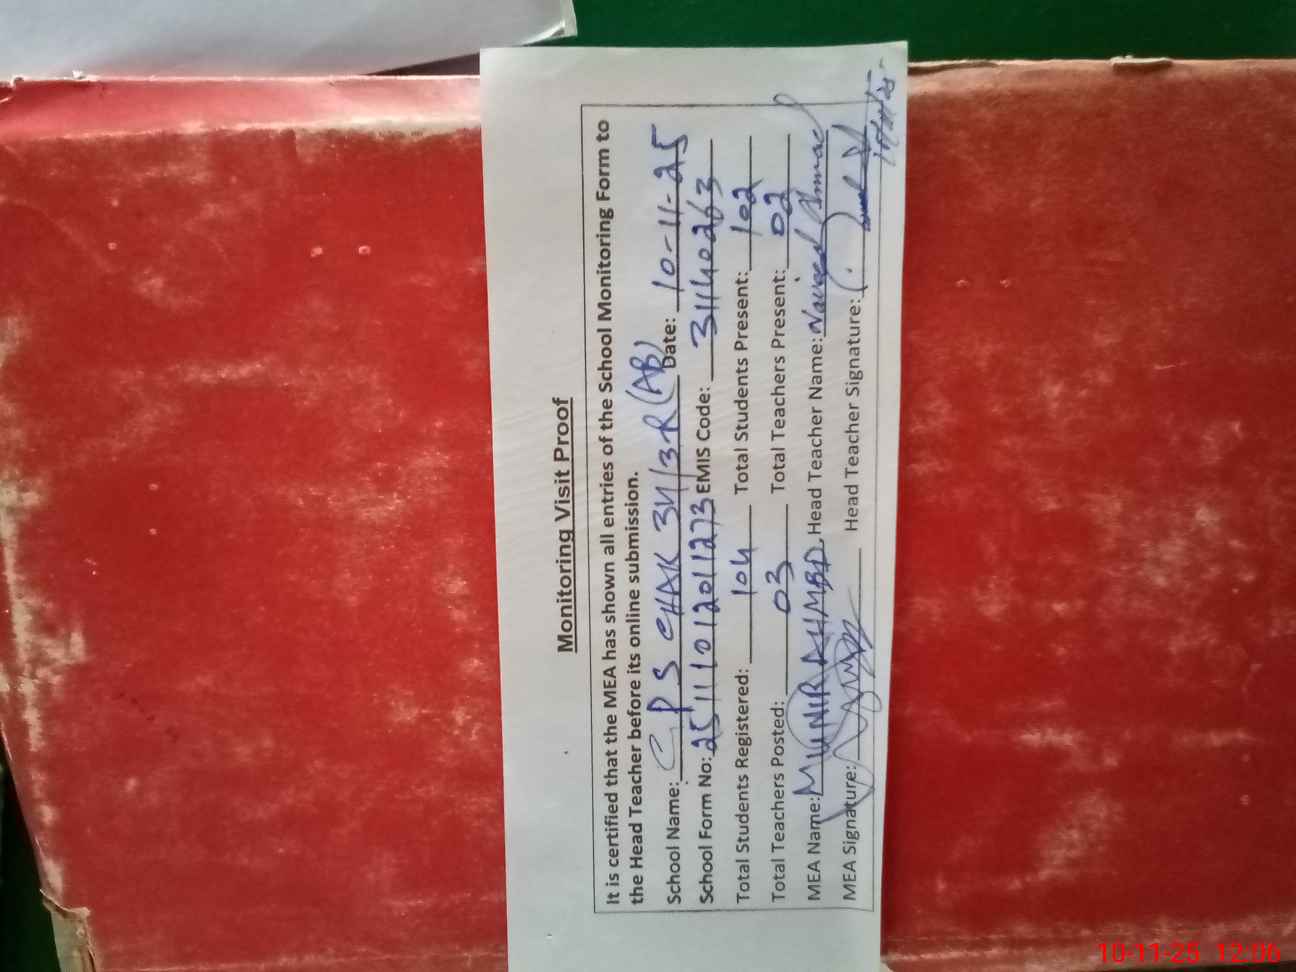 Monitoring Visit Proof
It is certified that the MEA has shown all entries of the School Monitoring Form to
the Head Teacher before its online submission.
School Name: GPS CHAK 34/3R (AB) Date: 10-11-25
School Form No: 25111012011273 EMIS Code: 31140263
Total Students Registered: 104 Total Students Present: 102
Total Teachers Posted: 03 Total Teachers Present: 02
MEA Name: MUNIR AHMED Head Teacher Name: Naveed Ahmad
MEA Signature: Head Teacher Signature:
10/11/25
10-11-25 12:06